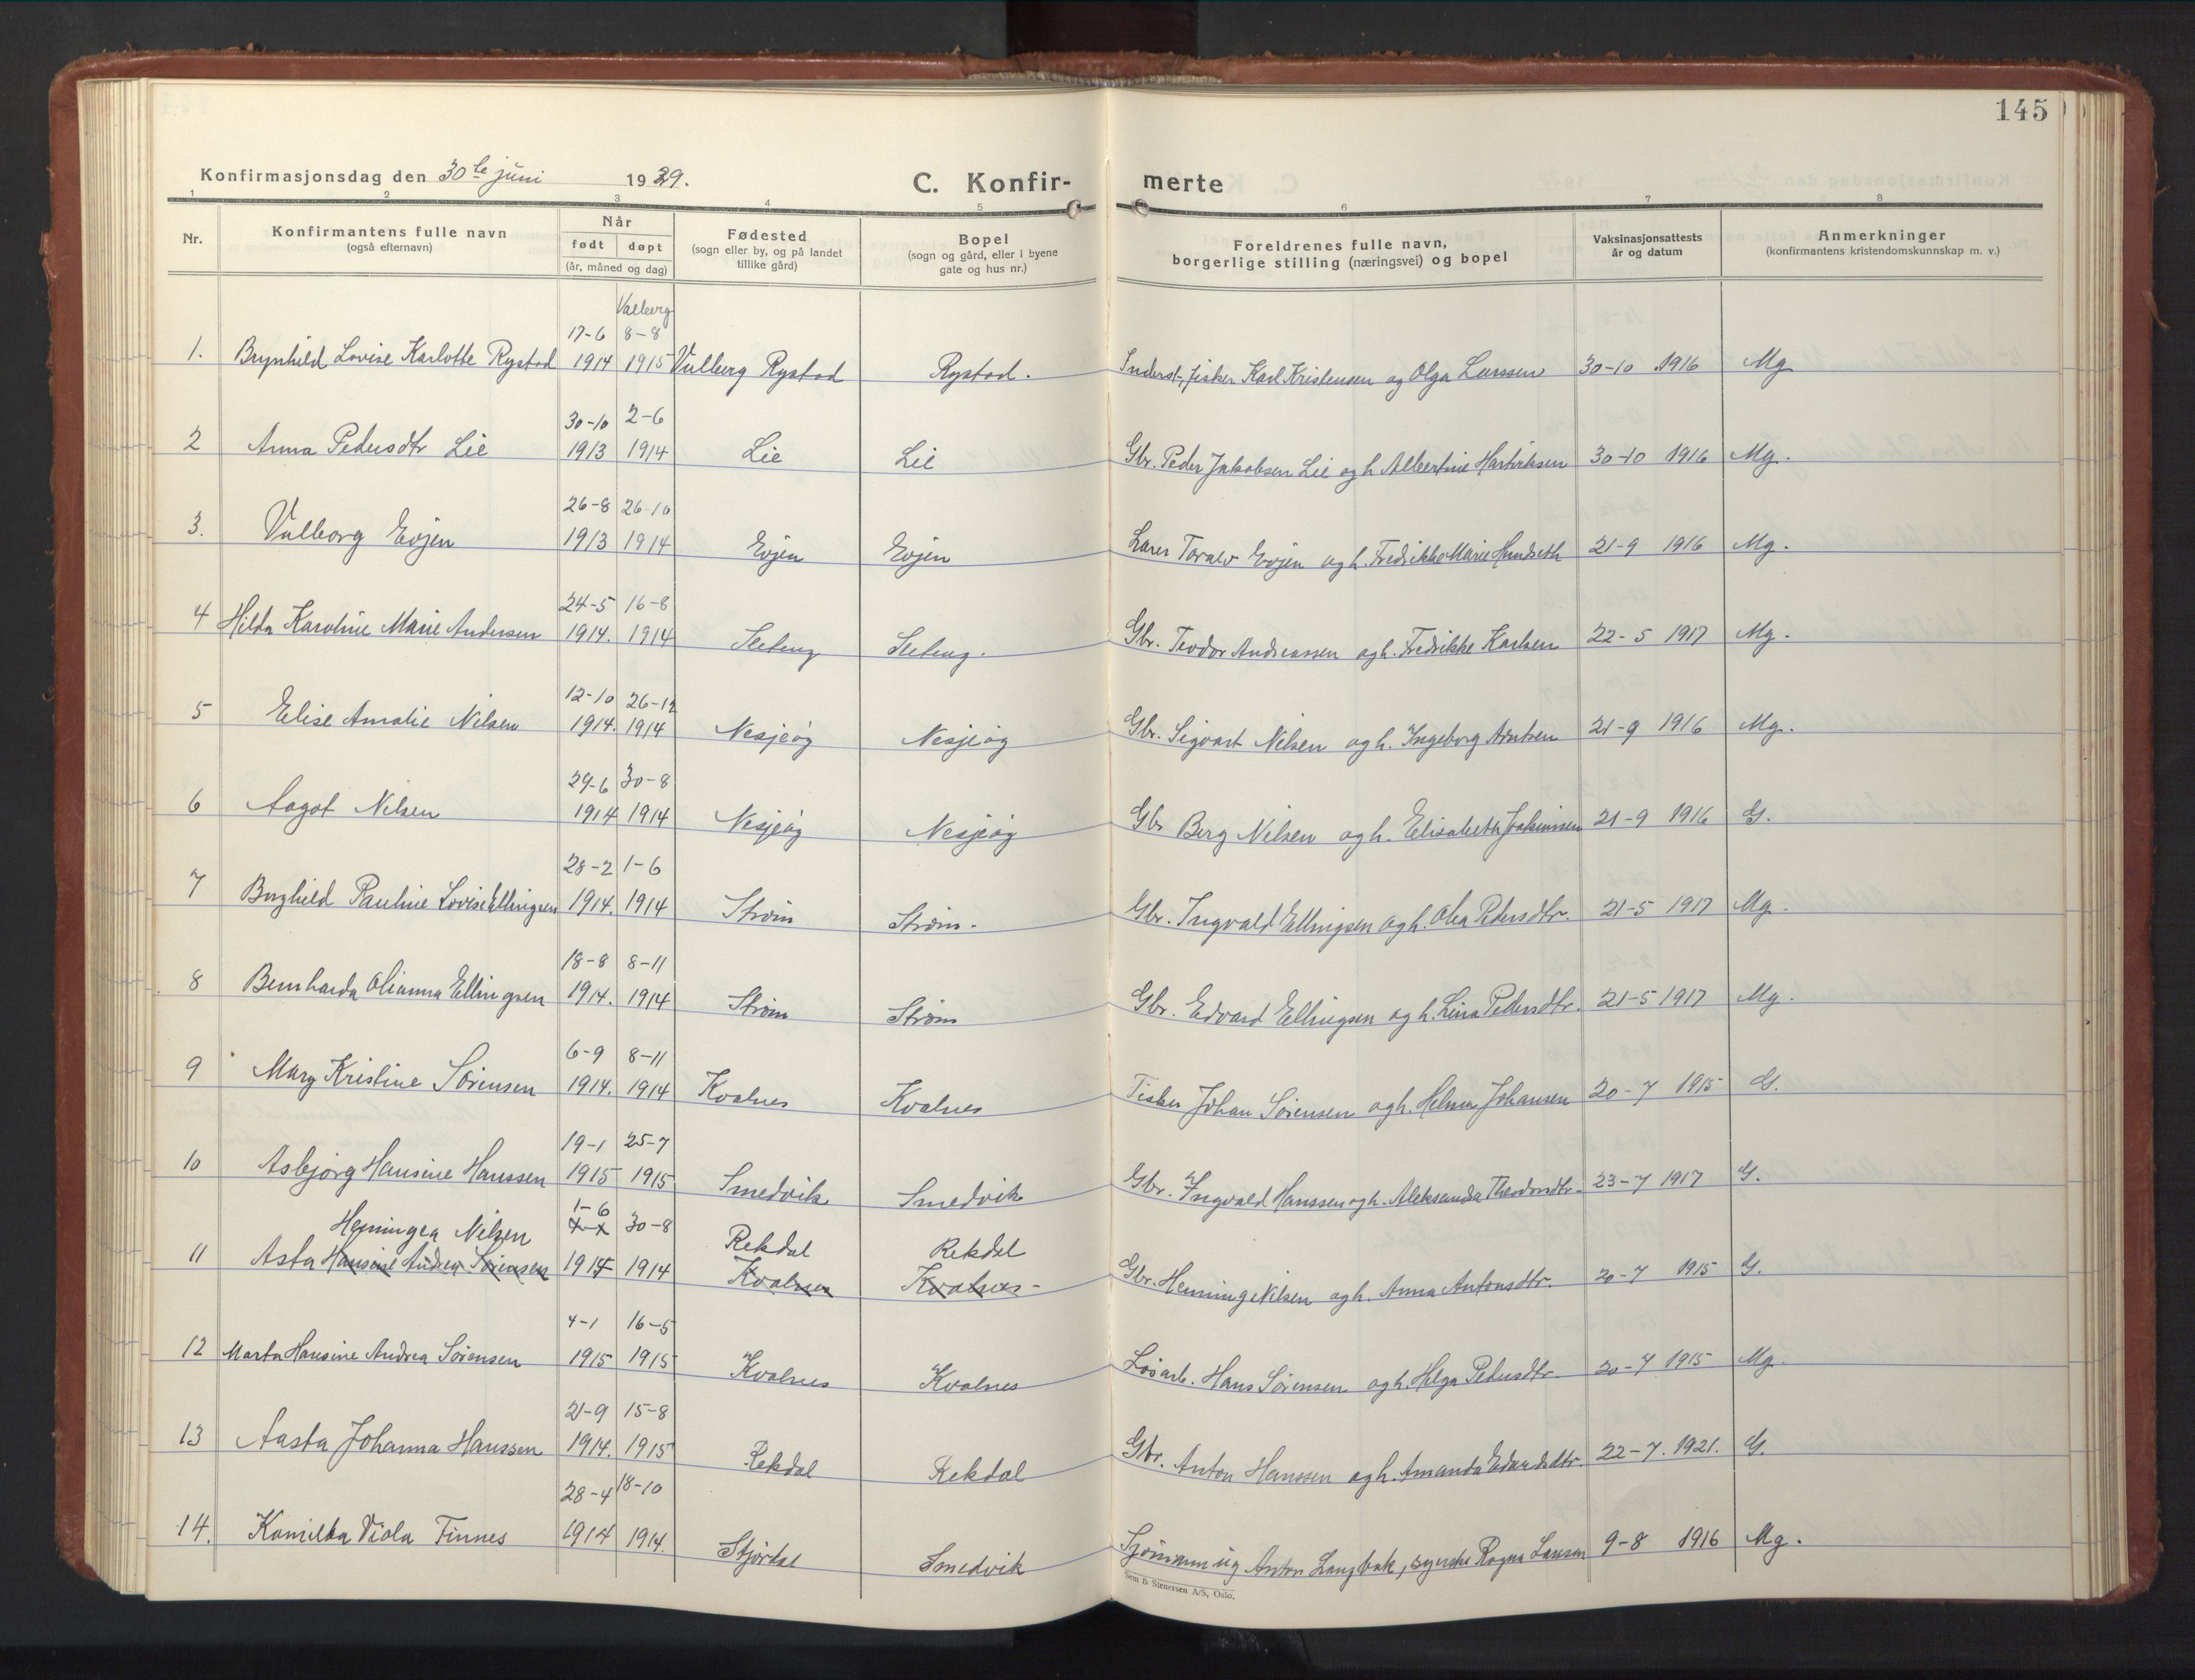 145
Konfirmasjonsdag den 30te juni 1929.
C. Konfir-
merte
1 2 3 4 5 6 7 8
Nr.
Konfirmantens fulle navn
(også efternavn)
Når
født døpt
(år, måned og dag)
Fødested
(sogn eller by, og på landet
tillike gård)
Bopel
(sogn og gård, eller i byene
gate og hus nr.)
Foreldrenes fulle navn,
borgerlige stilling (næringsvei) og bopel
Vaksinasjonsattests
år og datum
Anmerkninger
(konfirmantens kristendomskunnskap m. v.)
Valberg
17-6 8-8
1. Brynhild Lovise Karlotte Rystad 1914 1915 Valberg Rystad Rystad. Inderst, fisker Karl Kristensen og Olga Larssen 30-10 1916 Mg
30-10 2-6
2 Anna Pedersdtr Lie 1913 1914 Lie Lie Gbr. Peder Jakobsen Lie og h. Albertine Hartviksen 30-10 1916 Mg.
26-8 26-10
3. Valborg Evjen 1913 1914 Evjen Evjen Lærer Toralv Evjen og h. Fredrikke Marie Hundseth 21-9 1916 Mg.
24-5 16-8
4 Hilda Karoline Marie Andersen 1914. 1914 Gbr. Teodor Andreassen og h. Fredrikke Karlsen 22-5 1917 Mg.
12-10 26-12
5 Elise Amalie Nilsen 1914. 1914 Nesjeøy Nesjeøy Gbr. Sigvart Nilsen og h. Ingeborg Arntsen 21-9 1916 Mg.
29-6 30-8
6 Aagot Nilsen 1914 1914 Nesjeøy Nesjeøy Gbr Berg Nilsen og h. Elisabeth Joakimsen 21-9 1916 G.
28-2 1-6
7 Borghild Pauline Lovise Ellingsen 1914. 1914 Strøm Strøm. Gbr. Ingvald Ellingsen og h. Olea Pedersdtr. 21-5 1917 Mg.
18-8 8-11
8 Bernharda Olianna Ellingsen 1914. 1914 Strøm Strøm Gbr. Edvard Ellingsen og h. Lina Pedersdtr. 21-5 1917 Mg.
6-9 8-11
9 Mary Kristine Sörensen 1914. 1914 Kvalnes Kvalnes Fisker Johan Sörensen og h. Helma Johansen 20-7 1915 G.
19-1 25-7
10 Asbjørg Hansine Hanssen 1915 1915 Smedvik Smedvik Gbr. Ingvald Hanssen og h. Aleksanda Theodorsdtr. 23-7 1917 G.
1-6
Hemingea Nilsen 30-8 Rekdal Rekdal
11 Asta Hansine Andrea Sörensen 1914 1914 Kvalnes Kvalnes Gbr. Henning Nilsen og h. Anna Antonsdtr. 20-7 1915 G.
4-1 16-5
12 Marta Hansine Andrea Sörensen 1915 1915 Kvalnes Kvalnes Løsarb. Hans Sörensen og h. Helga Pedersdtr. 20-7 1915 Mg.
21-9 15-8
13 Aasta Johanna Hanssen 1914. 1915 Rekdal Rekdal Gbr. Anton Hanssen og h. Amanda Edvardsdtr. 22-7. 1921. G.
28-4 18-10
14. Kamilla Viola Finnes 1914 1914. Stjørdal Smedvik Sjømann ug Anton Langbak, syerske Ragna Larsen 9-8 1916 Mg.
Sem & Stenersen A/S, Oslo.